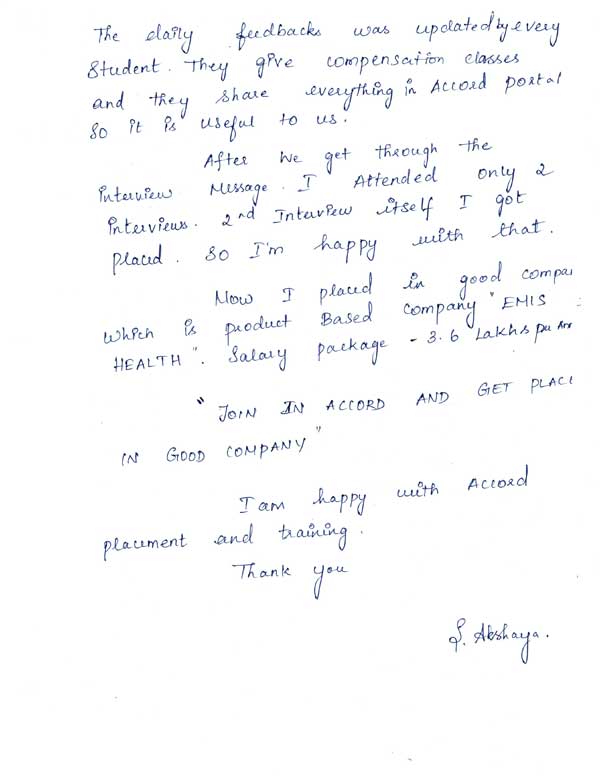 The daily feedbacks was updated by every
Student. They give compensation classes
and they share everything in Accord portal
So it is useful to us.
After We get through the
interview Message. I Attended only 2
interviews. 2nd Interview itself I got
placed. So I'm happy with that.
Now I placed in good compa
which is product Based company "EMIS
HEALTH". Salary package - 3.6 Lakhs per An
"JOIN IN ACCORD AND GET PLAC
IN GOOD COMPANY"
I am happy with Accord
placement and training.
Thank you
S. Akshaya.